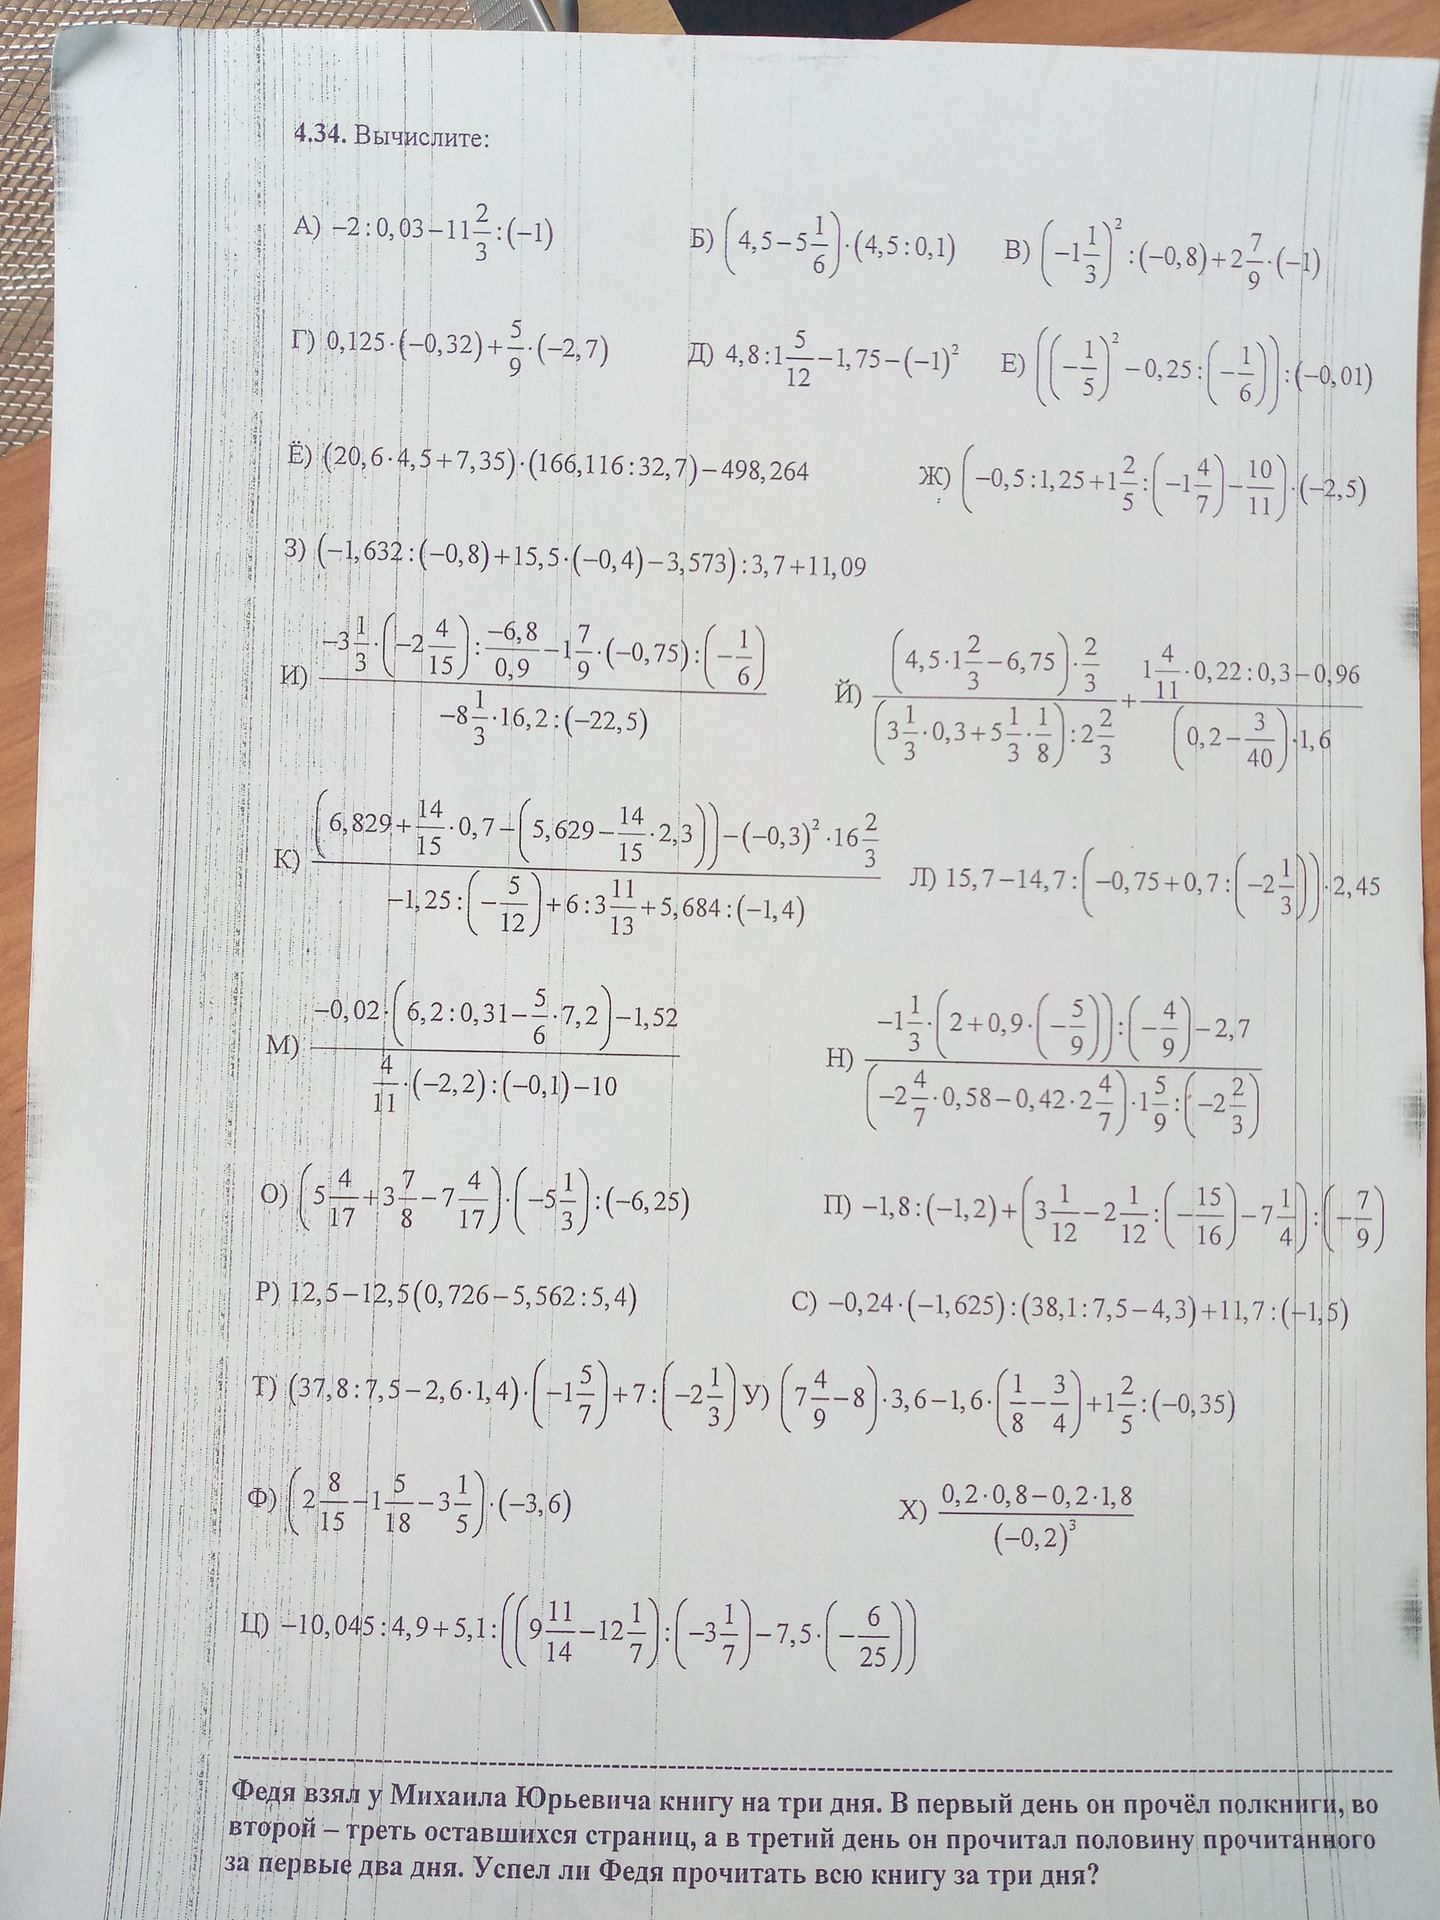 4.34. Вычислите:
А) −2:0,03−11 2/3:(−1) Б) (4,5−5 1/6)·(4,5:0,1) В) (−1 1/3)²:(−0,8)+2 7/9·(−1)
Г) 0,125·(−0,32)+5/9·(−2,7) Д) 4,8:1 5/12−1,75−(−1)² Е) ((−1/5)²−0,25:(−1/6)):(−0,01)
Ё) (20,6·4,5+7,35)·(166,116:32,7)−498,264 Ж) (−0,5:1,25+1 2/5:(−1 4/7)−10/11)·(−2,5)
З) (−1,632:(−0,8)+15,5·(−0,4)−3,573):3,7+11,09
И) (−3 1/3·(−2 4/15):(−6,8)/(0,9)−1 7/9·(−0,75):(−1/6))/(−8 1/3·16,2:(−22,5)) Й) ((4,5·1 2/3−6,75)·2/3)/((3 1/3·0,3+5 1/3·1/8):2 2/3)+(1 4/11·0,22:0,3−0,96)/((0,2−3/40)·1,6)
К) ((6,829+14/15·0,7−(5,629−14/15·2,3))−(−0,3)²·16 2/3)/(−1,25:(−5/12)+6:3 11/13+5,684:(−1,4)) Л) 15,7−14,7:(−0,75+0,7:(−2 1/3))·2,45
М) (−0,02·(6,2:0,31−5/6·7,2)−1,52)/(4/11·(−2,2):(−0,1)−10) Н) (−1 1/3·(2+0,9·(−5/9)):(−4/9)−2,7)/((−2 4/7·0,58−0,42·2 4/7)·1 5/9:(−2 2/3))
О) (5 4/17+3 7/8−7 4/17)·(−5 1/3):(−6,25) П) −1,8:(−1,2)+(3 1/12−2 1/12:(−15/16)−7 1/4):(−7/9)
Р) 12,5−12,5(0,726−5,562:5,4) С) −0,24·(−1,625):(38,1:7,5−4,3)+11,7:(−1,5)
Т) (37,8:7,5−2,6·1,4)·(−1 5/7)+7:(−2 1/3) У) (7 4/9−8)·3,6−1,6·(1/8−3/4)+1 2/5:(−0,35)
Ф) (2 8/15−1 5/18−3 1/5)·(−3,6) Х) (0,2·0,8−0,2·1,8)/(−0,2)³
Ц) −10,045:4,9+5,1:((9 11/14−12 1/7):(−3 1/7)−7,5·(−6/25))
Федя взял у Михаила Юрьевича книгу на три дня. В первый день он прочёл полкниги, во
второй – треть оставшихся страниц, а в третий день он прочитал половину прочитанного
за первые два дня. Успел ли Федя прочитать всю книгу за три дня?